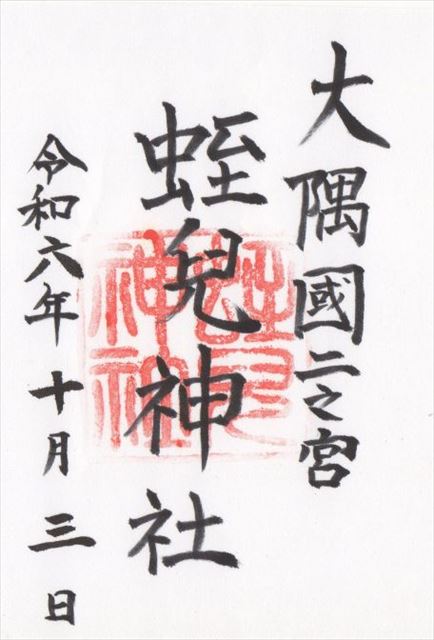 大隅國二之宮
蛭兒神社
令和六年十月三日